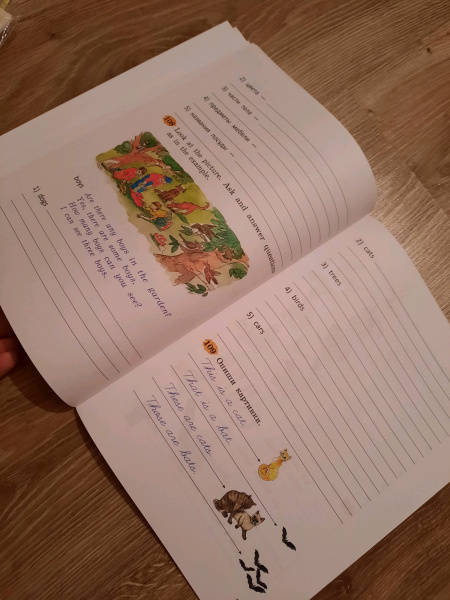 2) цвета —
3) части тела —
4) предметы мебели —
5) названия посуды —
108 Look at the picture. Ask and answer questions
as in the example.
boys
Are there any boys in the garden?
Yes, there are some boys.
How many boys can you see?
I can see three boys.
1) dogs
2) cats
3) trees
4) birds
5) cars
109 Опиши картинки.
This is a cat.
That is a bat.
These are cats.
Those are bats.